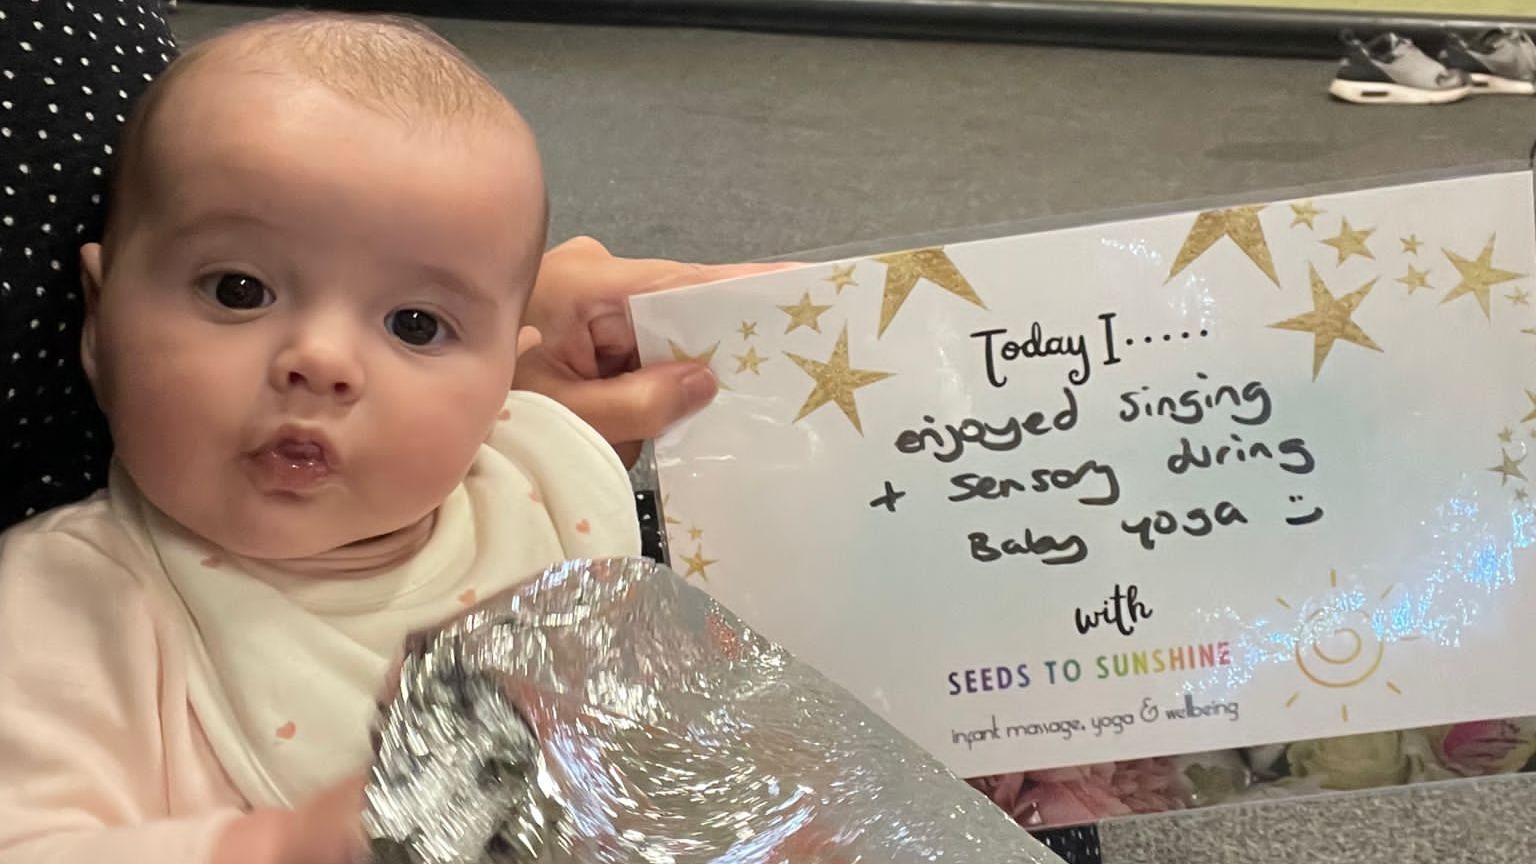 Today I.....
enjoyed singing
+ sensory during
Baby yoga :)
with
SEEDS TO SUNSHINE
infant massage, yoga & wellbeing